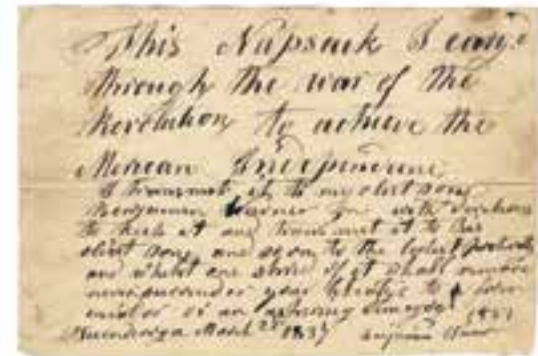 This Napsack I cary'd
through the war of the
Revolution to achieve the
Merican Independence
I transmit it to my olest sone
Benjamin Warner Jr. with directions
to keep it and transmit it to his
olest sone and so on to the latest posterity
and whilst one shred of it shall remane
never surrender your libertys to a foren
envador or an aspiring demegog
Ticonderoga March 1837 Benjamin Warner